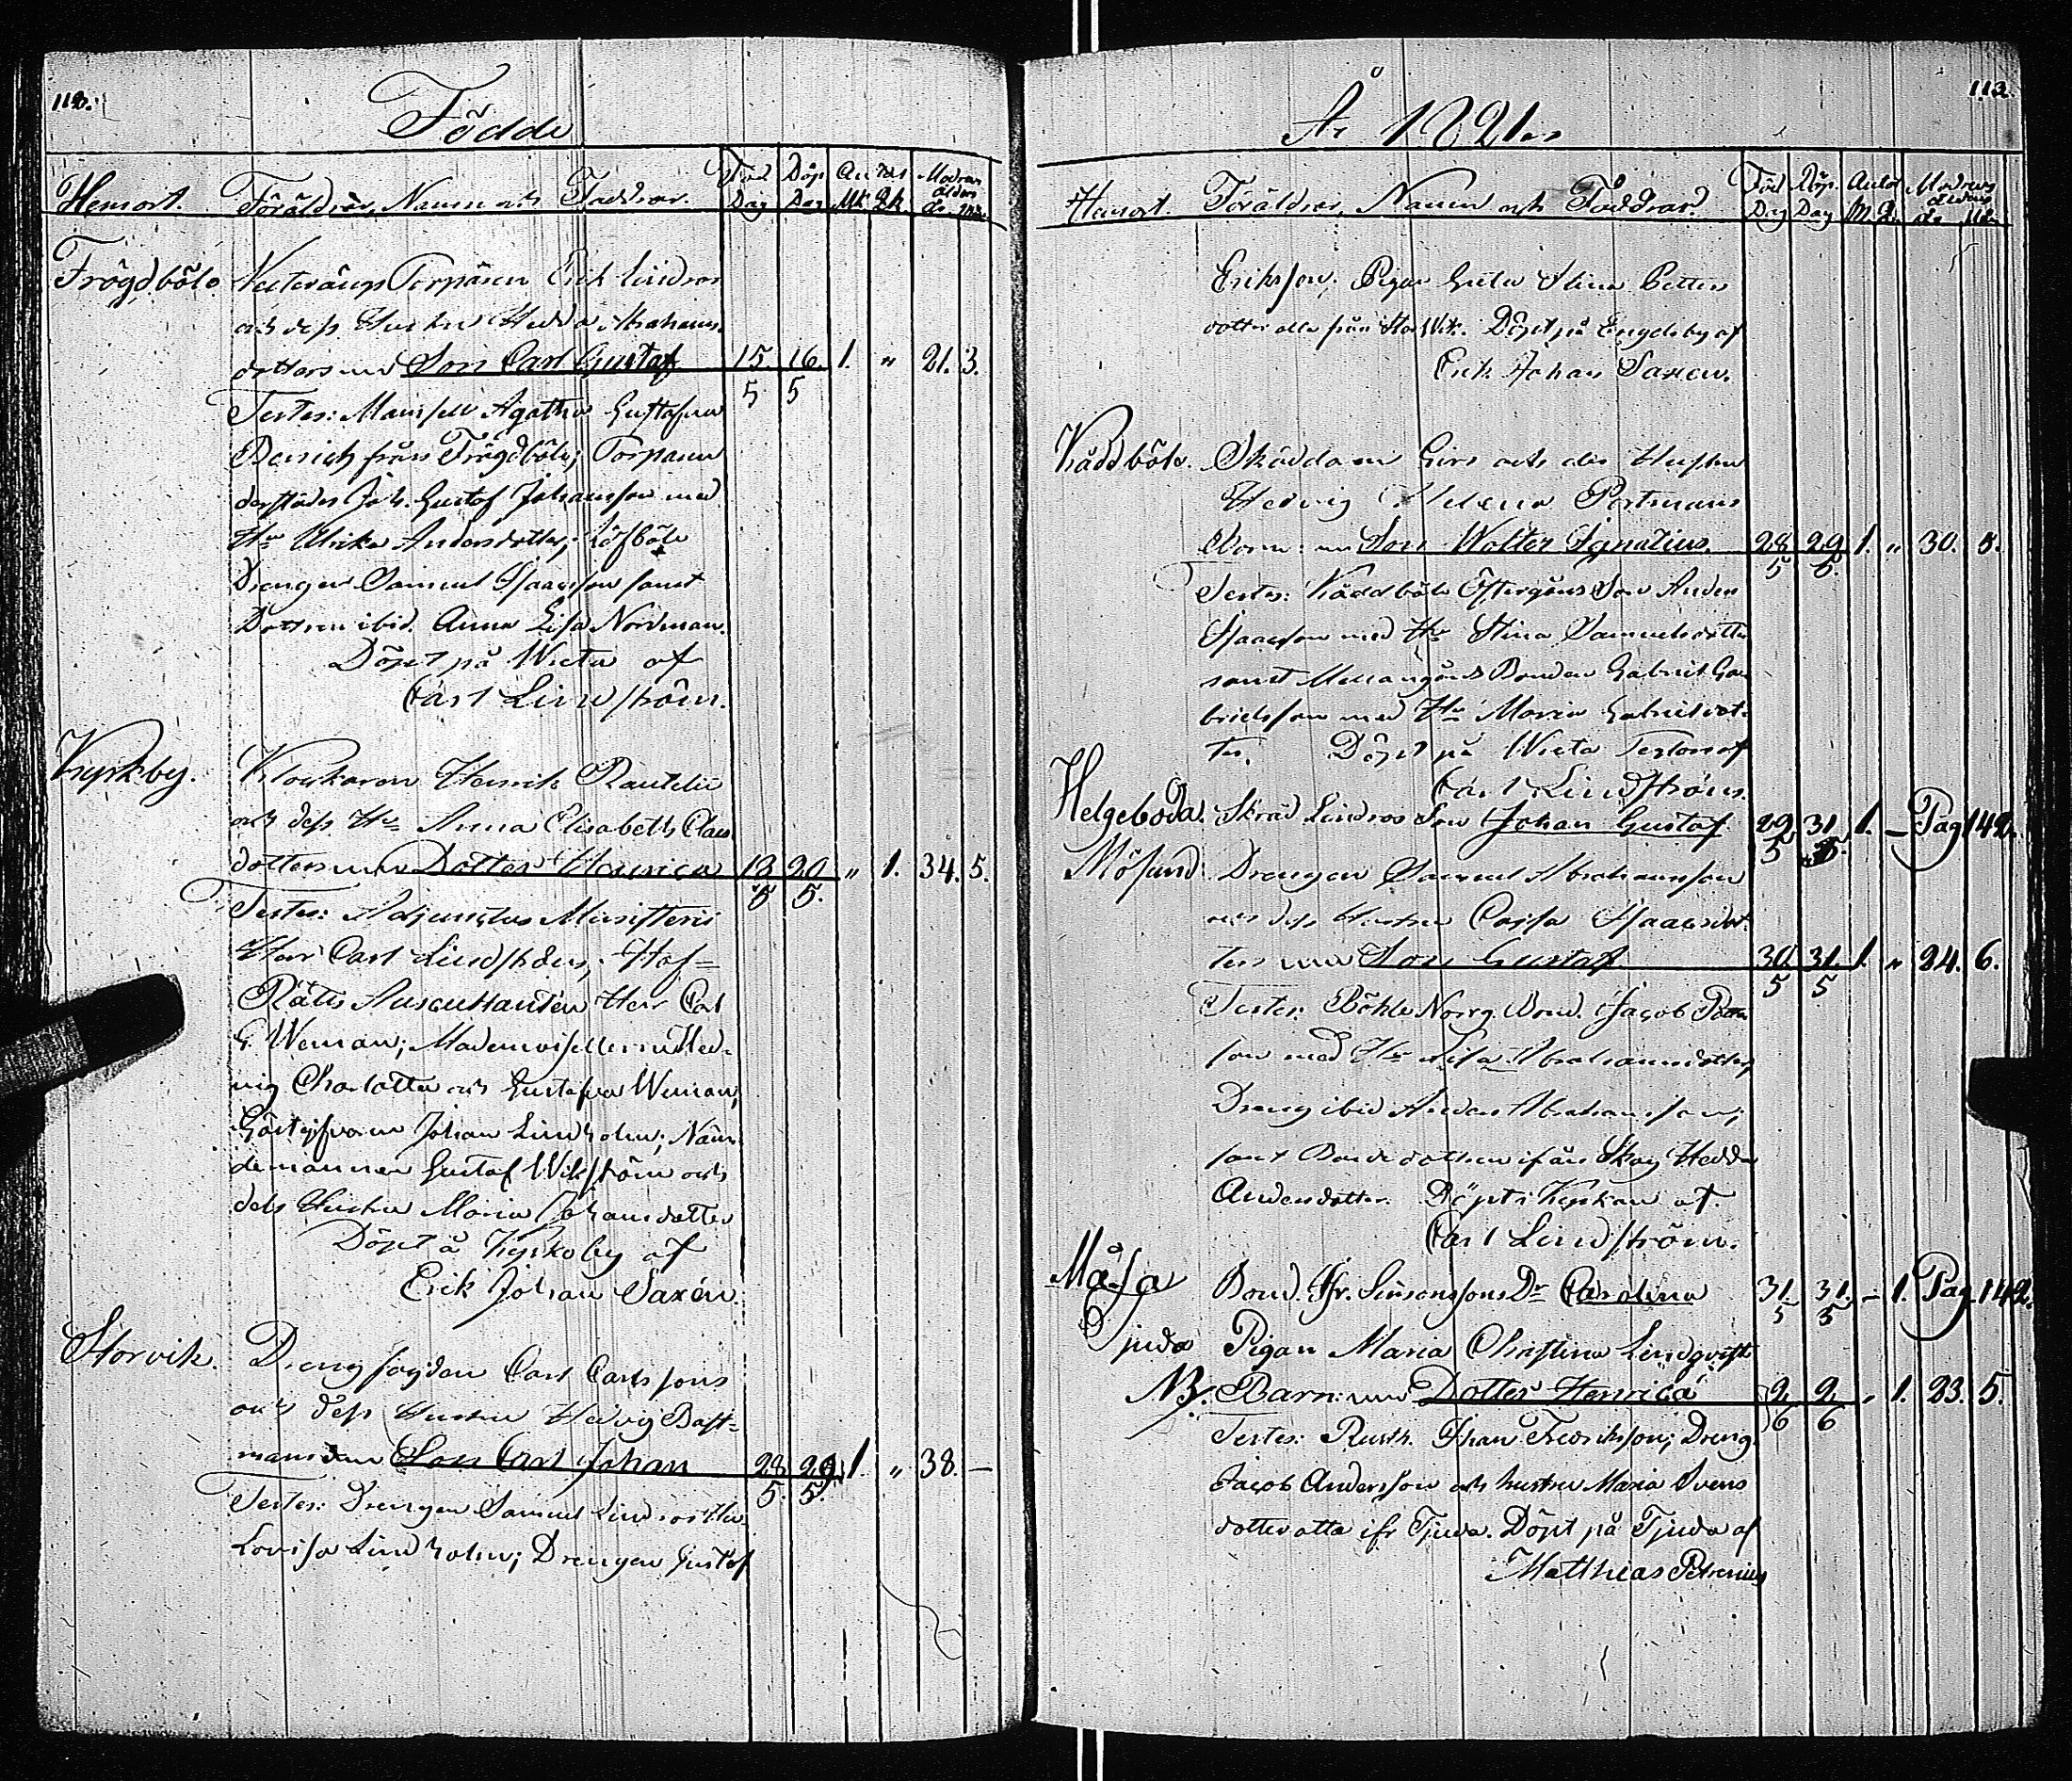 112.
Födde
Hemort. Föräldrar, Namn och Faddrar. Föd Dag Döp Dag Antal Mk. Qk. Modrens ålder år mån
Frögdböle. Torparen Erik Lindros
och dess Hustru Hedda Abrahams
dotters Son Carl Gustaf 15. 16. 1. " 21. 3.
5 5
Testes: Mamsell Agatha Gustafva
från Frögdböle; Torparen
derstädes Joh. Gustaf Johansson med
Hu Ulrika Andersdotter; Löfböle
Drengen Samuel Isaacsson samt
Dottren ibid. Anna Lisa Nordman.
Döpt på Wreta af
Carl Lindström.
Kyrkby. Klockaren Henrik Rautelii
och dess Hu Anna Elisabeth Claes
dotters Dotter Henrica 18 20 " 1. 34. 5.
5 5.
Testes: Adjunctus Ministerii
Herr Carl Lindström; Hof=
Rätts Auscultanten Herr Carl
G. Weman; Mademoisellerna Hed=
vig Charlotta och Gustafva Weman;
Gästgifvaren Johan Lindholm; Näm
demannen Gustaf Wikström och
dess Hustru Maria Johansdotter
Döpt å Kyrkoby af
Erik Johan Saxén.
Storvik. Drengfogden Carl Carlssons
och dess Hustru Hedvig Bast=
mans Son Carl Johan 28 29 1. " 38. —
5. 5.
Testes: Drengen Samuel Lindros Hu
Lovisa Lindholm; Drengen Gustaf
113.
År 1821
Hemort. Föräldrar, Namn och Faddrar. Föd Dag Döp. Dag Antal M. Q. Modrens ålder år Mån
Eriksson. Pigan Greta Stina Petters
dotter alla från Storvik. Döpt på Engelsby af
Erik Johan Saxén.
Kåddböle. Girs och des Hustru
Hedwig Helena Portmans
Barn: Son Wolter Ignatius 28 29 1. " 30. 8.
5 5.
Testes: Kåddböle Östergårds Son Anders
Isaacsson med Hu Stina Samuelsdotter
samt Mellangårds Bonden Gabriel Ga
brielsson med Hu Maria Gabrielsdot
ter. Döpt på Wreta af
Carl Lindström.
Helgeboda. Skräd Lindros Son Johan Gustaf 29 31 1. — Pag 142.
5 5.
Mösund Drengen Samuel Abrahamsson
och dess Hustru Cajsa Isaacsdot
ters Son Gustaf 30 31. 1. " 24. 6.
5 5
Testes: Böhle Norrg. Bond. Jacob
son med Hu Lisa Abrahamsdotter,
Dreng ibid Anders Abrahamsson;
samt Bonde dottren ifån Skog Hedda
Andersdotter. Döpt i Kyrkan af
Carl Lindström.
Måsa Bond. Fr. Simonssons Dr Carolina 31. 31. — 1. Pag 142.
5 5
Tjuda Pigan Maria Christina Lindqvist
NB. Barn: Dotter Henrica 2 2 " 1. 23. 5.
6 6
Testes: Rusth. Johan Fredriksson; Dreng.
Jacob Andersson och hustru Maria Svens
dotter alla ifr Tjuda. Döpt på Tjuda af
Matthias Petrenius